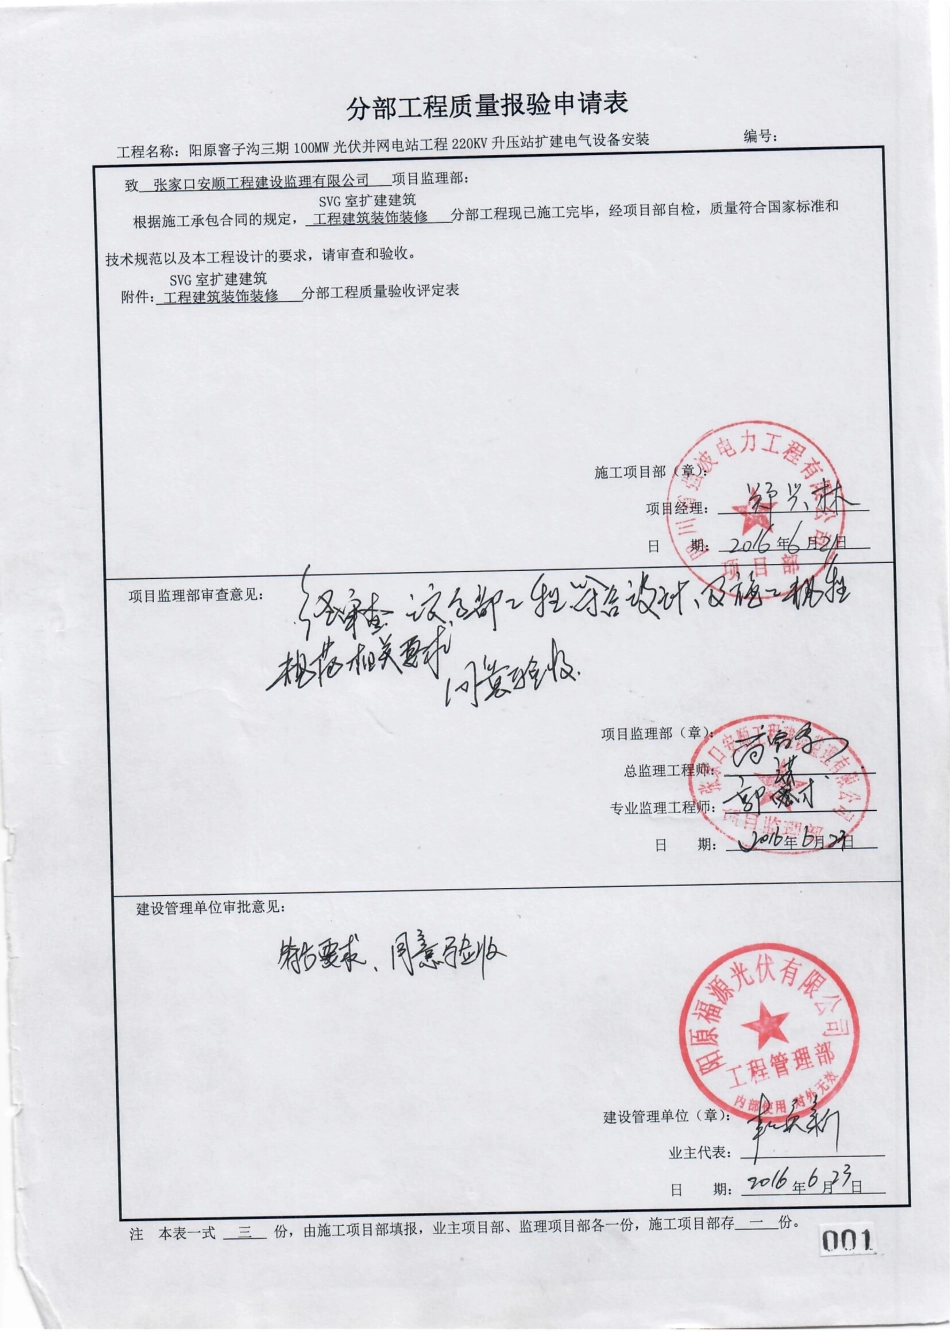 分部工程质量报验申请表
工程名称：阳原窨子沟三期100MW光伏并网电站工程220KV升压站扩建电气设备安装 编号：
致 张家口安顺工程建设监理有限公司 项目监理部：
SVG室扩建建筑
根据施工承包合同的规定， 工程建筑装饰装修 分部工程现已施工完毕，经项目部自检，质量符合国家标准和
技术规范以及本工程设计的要求，请审查和验收。
SVG室扩建建筑
附件：工程建筑装饰装修 分部工程质量验收评定表
波电力工程有限公司
项目部
施工项目部（章）：
项目经理：郑兴林
日 期：2016年6月21日
项目监理部审查意见：
经审查 该分部工程符合设计、及施工
规范相关要求
同意验收.
张家口安顺工程建设监理有限公司
项目监理部
项目监理部（章）：
总监理工程师：
专业监理工程师：
日 期：2016年6月23日
建设管理单位审批意见：
符合要求、同意验收
阳原福源光伏有限公司
工程管理部
内部使用 对外无效
建设管理单位（章）：
业主代表：
日 期：2016年6月23日
注 本表一式 三 份，由施工项目部填报，业主项目部、监理项目部各一份，施工项目部存 一 份。
001